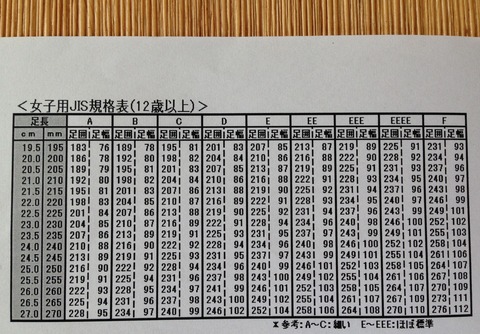 <女子用JIS規格表(12歳以上)>
足長 A B C D E EE EEE EEEE F
cm mm 足囲 足幅 足囲 足幅 足囲 足幅 足囲 足幅 足囲 足幅 足囲 足幅 足囲 足幅 足囲 足幅 足囲 足幅
19.5 195 183 76 189 78 195 81 201 83 207 85 213 87 219 89 225 91 231 93
20.0 200 186 78 192 80 198 82 204 84 210 86 216 88 222 90 228 92 234 95
20.5 205 189 79 195 81 201 83 207 85 213 87 219 89 225 91 231 94 237 96
21.0 210 192 80 198 82 204 84 210 86 216 88 222 91 228 93 234 95 240 97
21.5 215 195 81 201 83 207 86 213 88 219 90 225 92 231 94 237 96 243 98
22.0 220 198 83 204 85 210 87 216 89 222 91 228 93 234 95 240 97 246 99
22.5 225 201 84 207 86 213 88 219 90 225 92 231 94 237 96 243 99 249 101
23.0 230 204 85 210 87 216 89 222 91 228 94 234 96 240 98 246 100 252 102
23.5 235 207 86 213 89 219 91 225 93 231 95 237 97 243 99 249 101 255 103
24.0 240 210 88 216 90 222 92 228 94 234 96 240 98 246 100 252 102 258 104
24.5 245 213 89 219 91 225 93 231 95 237 97 243 99 249 102 255 104 261 106
25.0 250 216 90 222 92 228 94 234 96 240 99 246 101 252 103 258 105 264 107
25.5 255 219 91 225 94 231 96 237 98 243 100 249 102 255 104 261 106 267 108
26.0 260 222 93 228 95 234 97 240 99 246 101 252 103 258 105 264 107 270 109
26.5 265 225 94 231 96 237 98 243 100 249 102 255 104 261 107 267 109 273 111
27.0 270 228 95 234 97 240 99 246 102 252 104 258 106 264 108 270 110 276 112
※参考:A~C:細い E~EEE:ほぼ標準